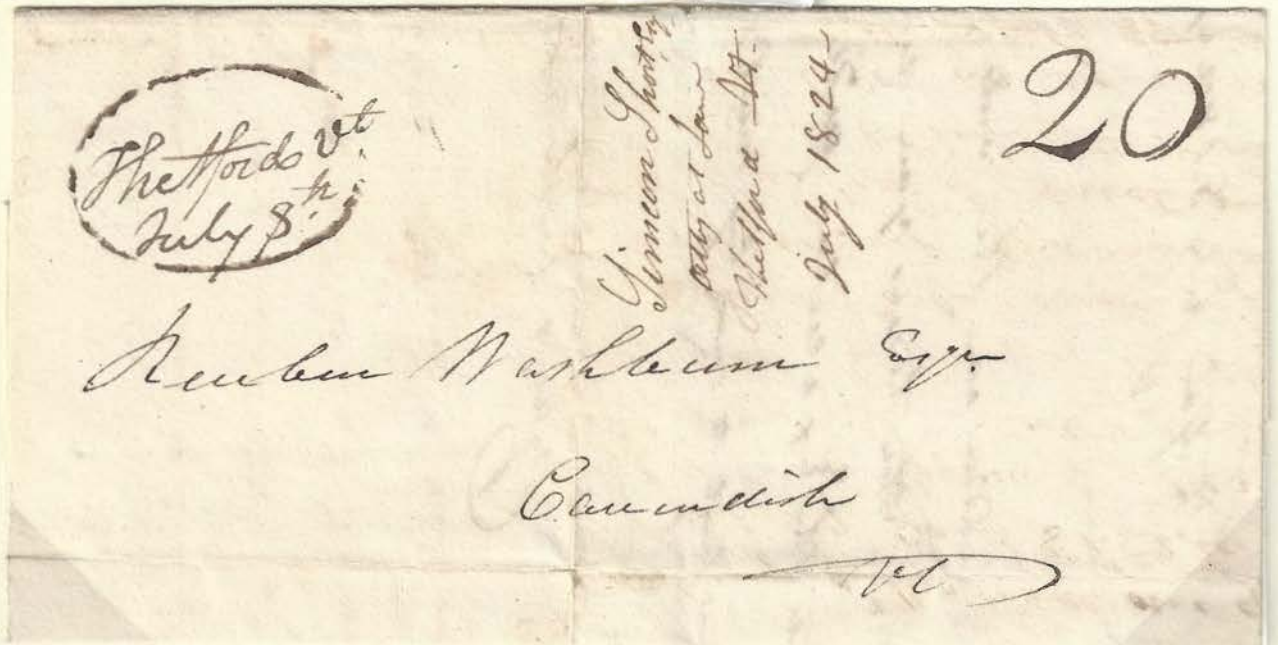 Thetford Vt.
July 8th
20
Simeon Short
Atty at Law
Thetford Vt.
July 1824
Reuben Washburn Esqr
Cavendish
Vt